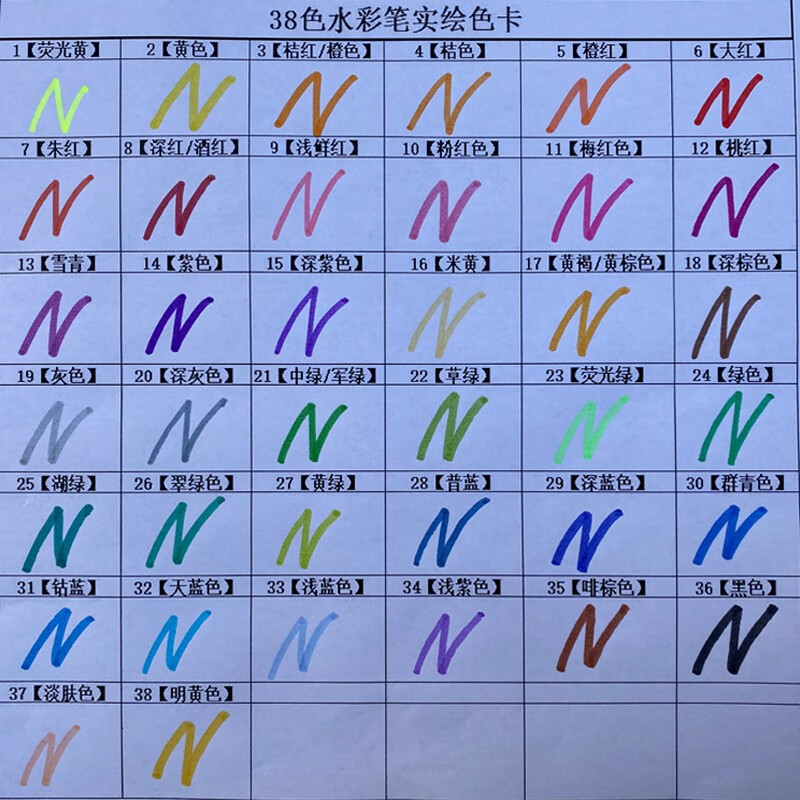 38色水彩笔实绘色卡
1【荧光黄】 2【黄色】 3【桔红/橙色】 4【桔色】 5【橙红】 6【大红】
N N N N N N
7【朱红】 8【深红/酒红】 9【浅鲜红】 10【粉红色】 11【梅红色】 12【桃红】
N N N N N N
13【雪青】 14【紫色】 15【深紫色】 16【米黄】 17【黄褐/黄棕色】 18【深棕色】
N N N N N N
19【灰色】 20【深灰色】 21【中绿/军绿】 22【草绿】 23【荧光绿】 24【绿色】
N N N N N N
25【湖绿】 26【翠绿色】 27【黄绿】 28【普蓝】 29【深蓝色】 30【群青色】
N N N N N N
31【钴蓝】 32【天蓝色】 33【浅蓝色】 34【浅紫色】 35【啡棕色】 36【黑色】
N N N N N N
37【淡肤色】 38【明黄色】
N N